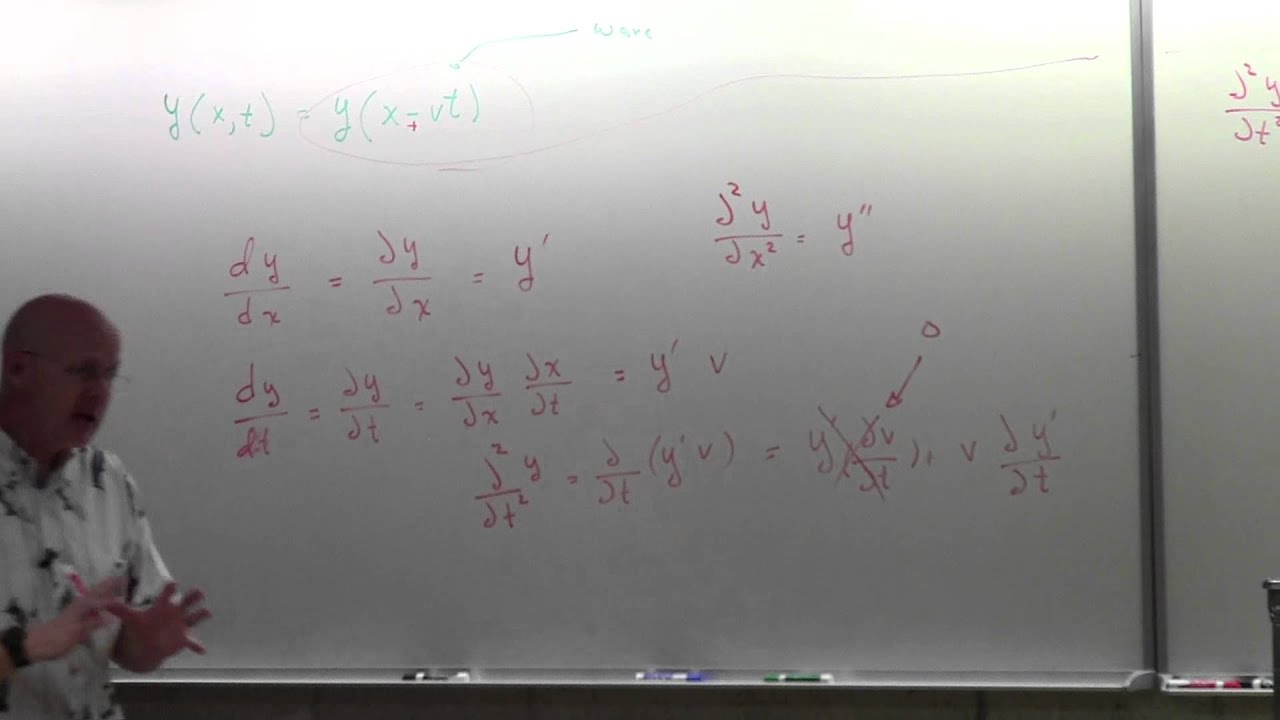 wave
y(x,t) = y(x ∓ vt)
∂²y/∂x² = y″
dy/dx = ∂y/∂x = y′
0
dy/dt = ∂y/∂t = ∂y/∂x ∂x/∂t = y′ v
∂²y/∂t² = ∂/∂t (y′ v) = y (∂v/∂t) + v ∂y′/∂t
∂²y/∂t²